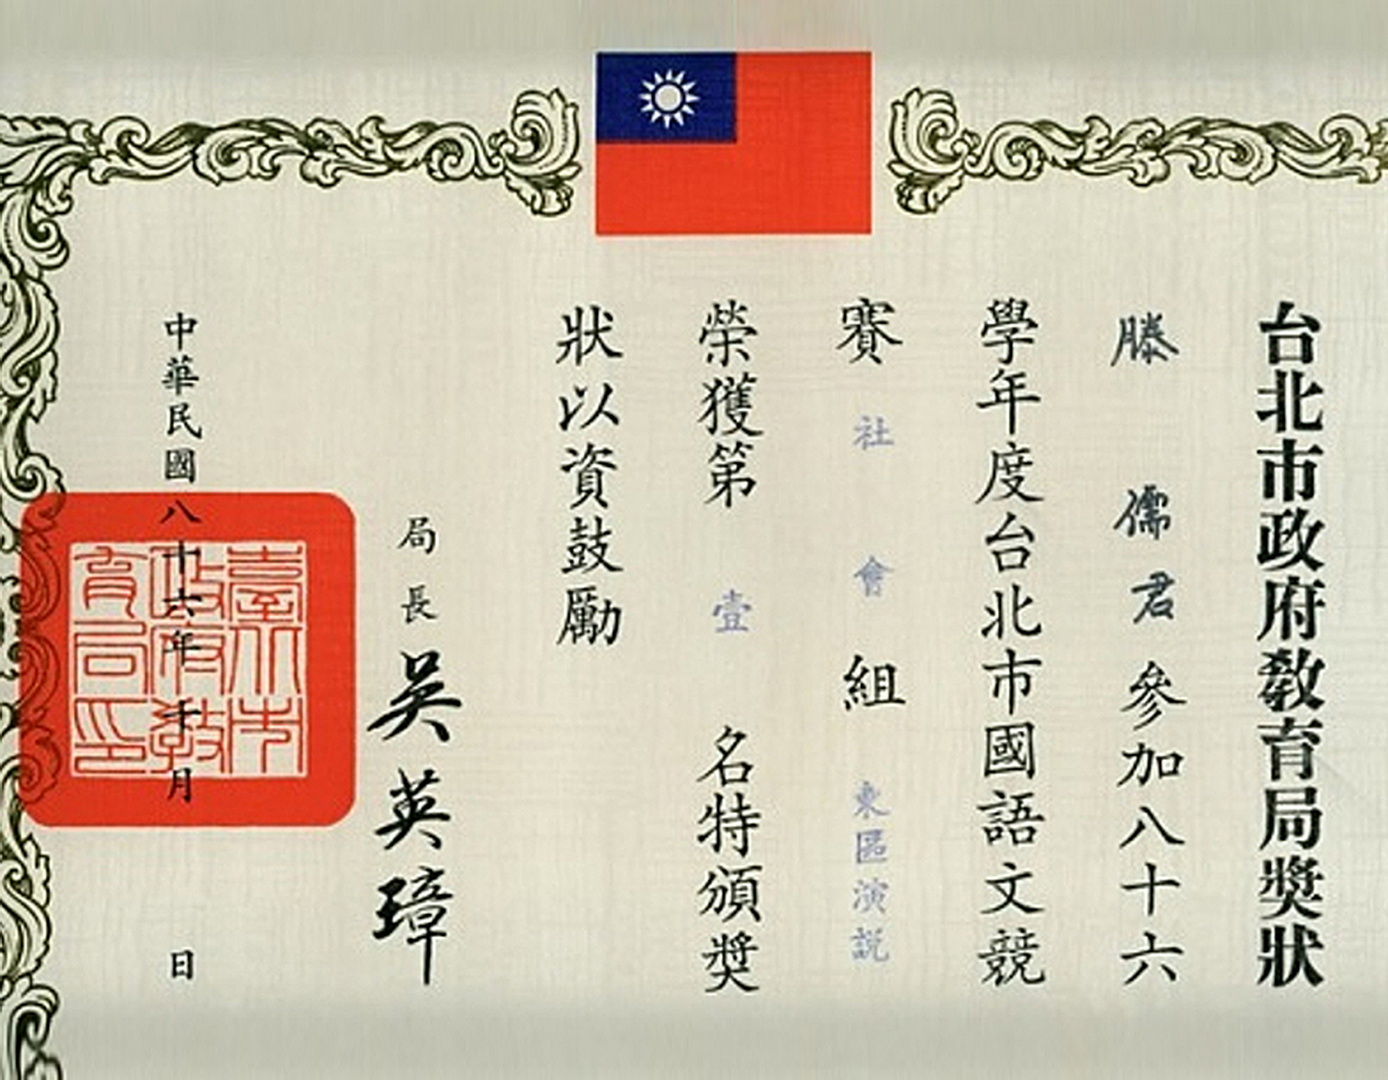 台北市政府教育局獎狀
滕儒君參加八十六
學年度台北市國語文競
賽社會組東區演説
榮獲第壹名特頒獎
狀以資鼓勵
局長吳英璋
中華民國八十六年十月日
臺北市
政府教
育局印